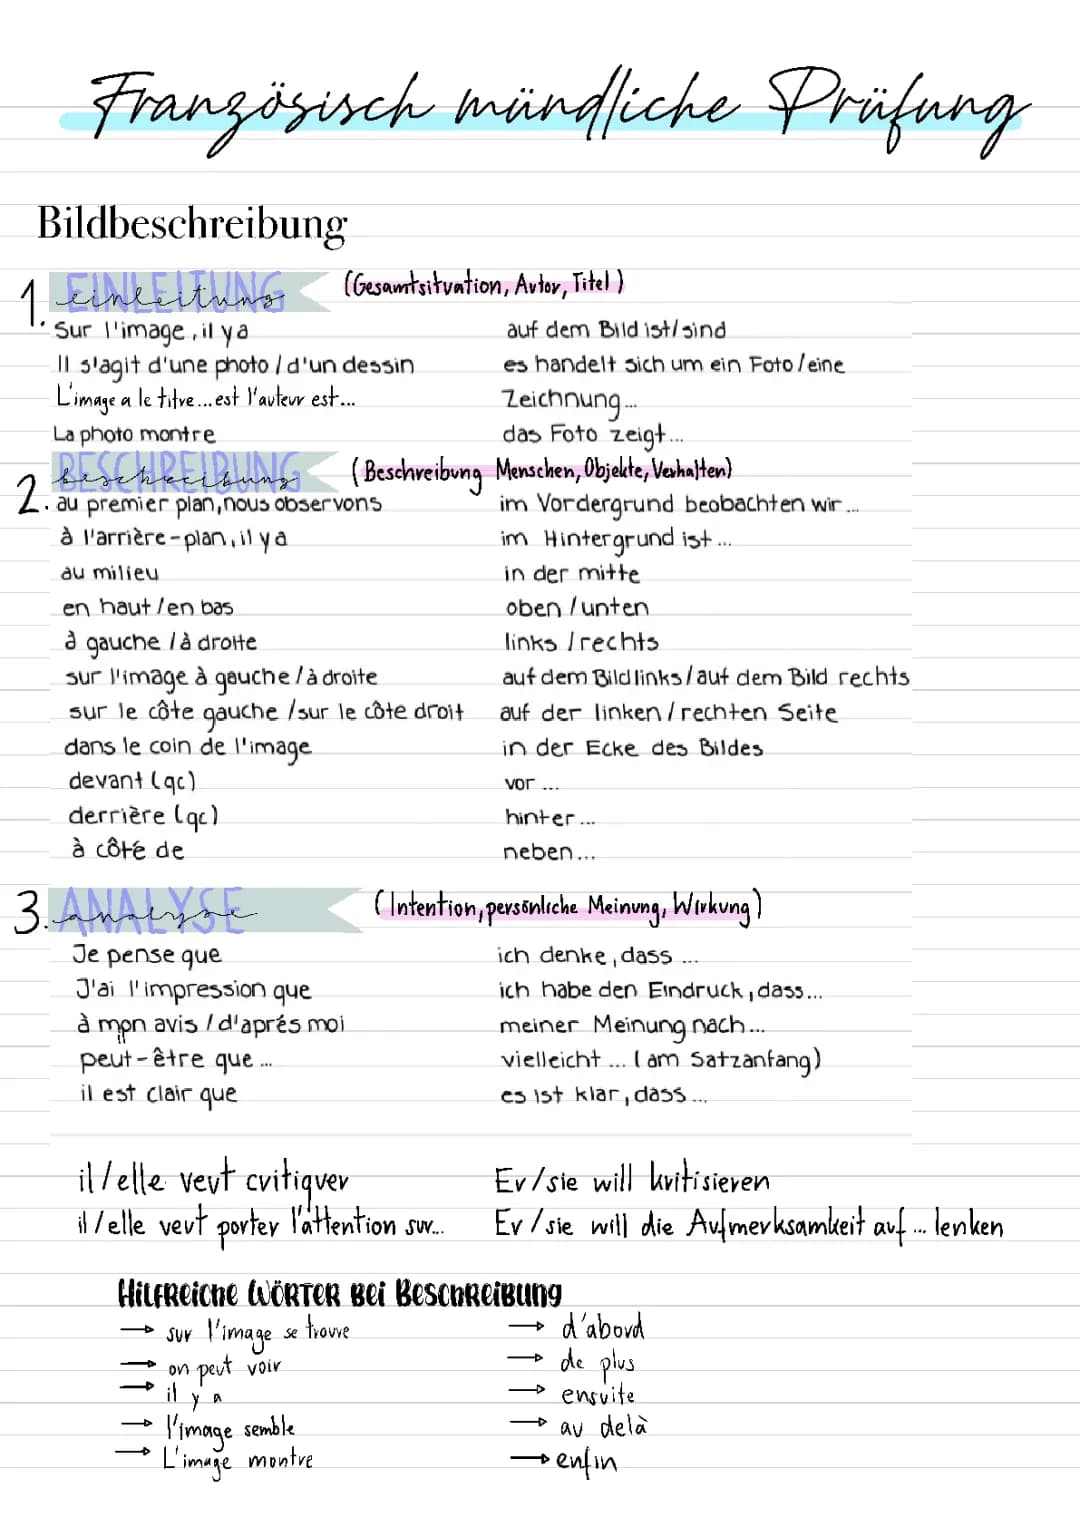 Französisch mündliche Prüfung
Bildbeschreibung
1. EINLEITUNG einleitung (Gesamtsituation, Autor, Titel)
Sur l'image, il y a auf dem Bild ist/sind
Il s'agit d'une photo / d'un dessin es handelt sich um ein Foto/eine
L'image a le titre...est l'auteur est... Zeichnung...
La photo montre das Foto zeigt...
2. BESCHREIBUNG beschreibung (Beschreibung Menschen, Objekte, Verhalten)
au premier plan, nous observons im Vordergrund beobachten wir...
à l'arrière-plan, il y a im Hintergrund ist...
au milieu in der mitte
en haut/en bas oben/unten
à gauche /à droite links /rechts
sur l'image à gauche/à droite auf dem Bild links/auf dem Bild rechts
sur le côte gauche /sur le côte droit auf der linken/rechten Seite
dans le coin de l'image in der Ecke des Bildes
devant (qc) vor ...
derrière (qc) hinter...
à côté de neben...
3. ANALYSE analyse (Intention, persönliche Meinung, Wirkung)
Je pense que ich denke, dass ...
J'ai l'impression que ich habe den Eindruck, dass...
à mon avis / d'aprés moi meiner Meinung nach...
peut-être que ... vielleicht ... (am Satzanfang)
il est clair que es ist klar, dass...
il/elle veut critiquer Er/sie will kritisieren
il/elle veut porter l'attention sur... Er/sie will die Aufmerksamkeit auf... lenken
Hilfreiche Wörter bei Beschreibung
→ sur l'image se trouve → d'abord
→ on peut voir → de plus
→ il y a → ensuite
→ l'image semble → au delà
→ L'image montre → enfin